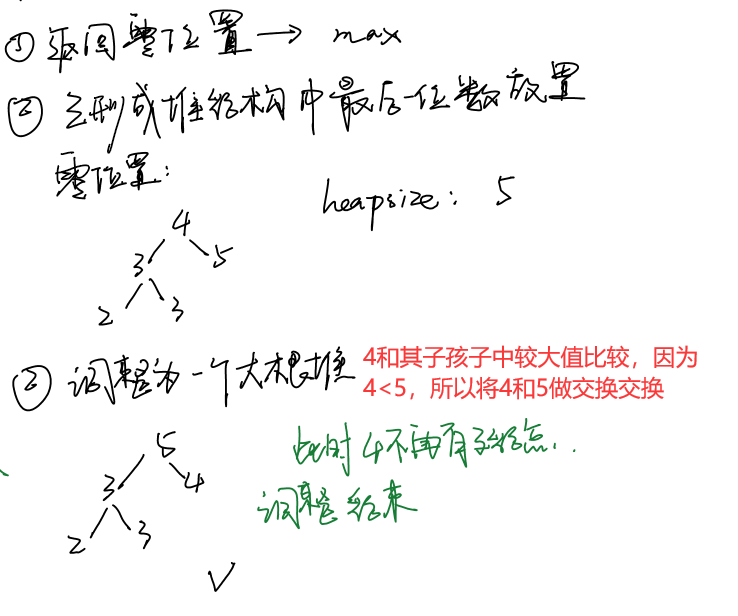 ① 返回零位置 → max
② 已形成堆结构中最后一位数放置
零位置:
heapsize: 5
4
3 5
2 3
③ 调整为一个大根堆
4和其子孩子中较大值比较，因为
4<5，所以将4和5做交换交换
5
3 4
2 3
此时4不再有子结点..
调整结束